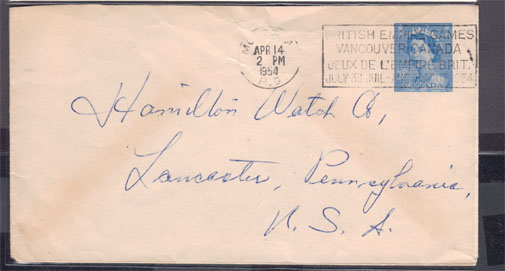 APR 14
2 PM
1954
P.Q.
BRITISH EMPIRE GAMES
VANCOUVER CANADA
JEUX DE L'EMPIRE BRIT.
JULY 30 JUIL.- 1954
CANADA
Hamilton Watch Co,
Lancaster, Pennsylvania,
U. S. A.